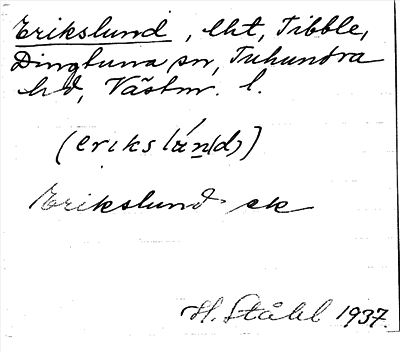 Erikslund, lht, Tibble,
Dingtuna sn, Tuhundra
hd, Västm. l.
Erikslund ek
H. Ståhl 1937.